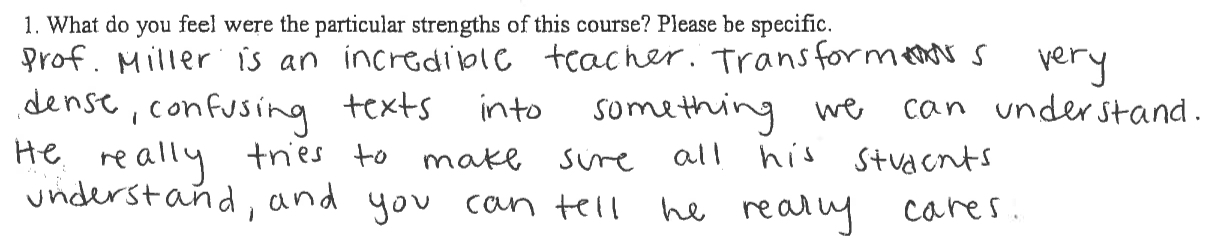 1. What do you feel were the particular strengths of this course? Please be specific.
Prof. Miller is an incredible teacher. Transforms very
dense, confusing texts into something we can understand.
He really tries to make sure all his students
understand, and you can tell he really cares.